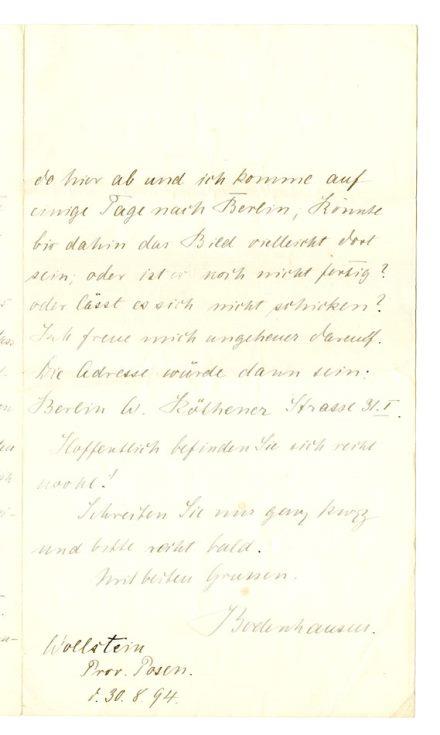 do hier ab und ich komme auf
einige Tage nach Berlin, Könnte
bis dahin das Bild vielleicht dort
sein, oder ist er noch nicht fertig?
oder lässt es sich nicht schicken?
Ich freue mich ungeheuer darauf.
Die Adresse würde dann sein:
Berlin W. Köthener Strasse 31. I.
Hoffentlich befinden Sie sich recht
wohl!
Schreiben Sie nur ganz kurz
und bitte recht bald.
Mit besten Grüssen.
Bodenhausen.
Wollstein
Prov. Posen.
d. 30. 8. 94.